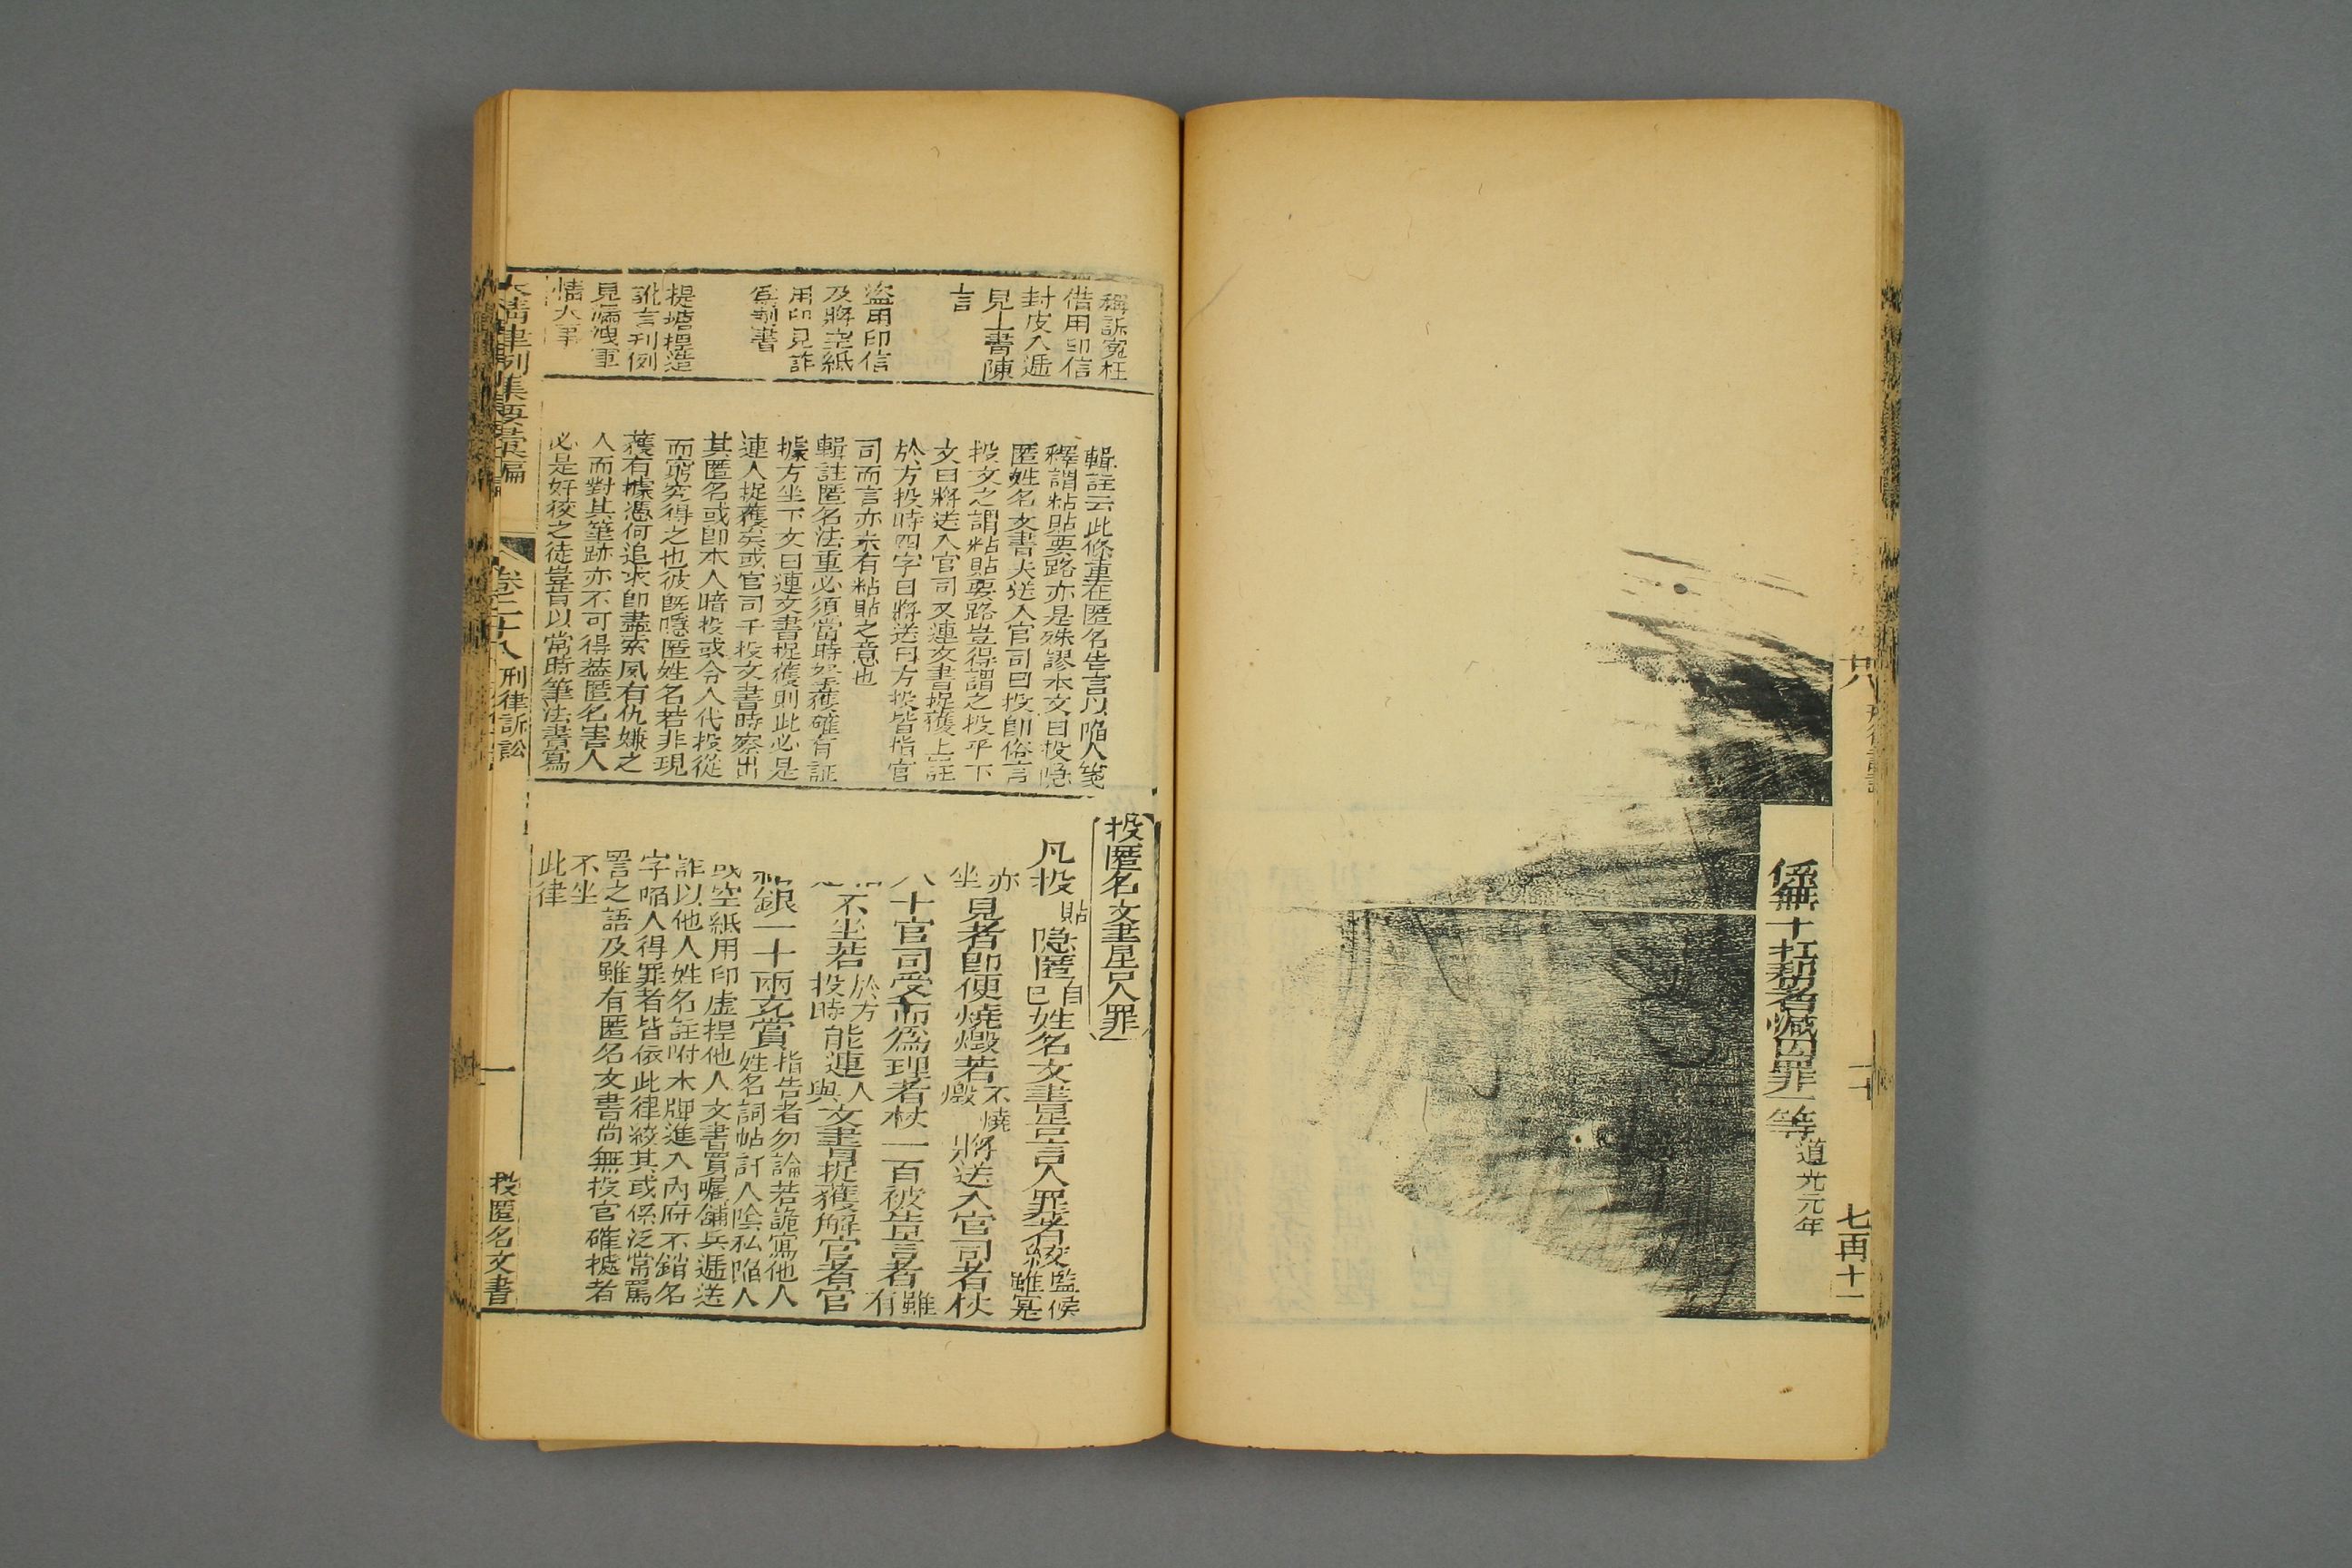 係無干扛幇者減囚罪一等道光元年
七再十一
稱訴寃枉
借用印信
封皮入遞
見上書陳
言
盗用印信
及將空紙
用印見詐
爲制書
提塘捏造
訛言刋例
見漏洩軍
情大事
輯註云此條重在匿名告言以陷人箋
釋謂粘貼要路亦是殊謬本文曰投隐
匿姓名文書夫送入官司曰投卽俗言
投文之謂粘貼要路豈得謂之投乎下
文曰將送入官司又連文書捉獲上註
於方投時四字曰將送曰方投皆指官
司而言亦未有粘貼之意也
輯註匿名法重必須當時拏獲確有証
據方坐下文曰連文書捉獲則此必是
連人捉獲矣或官司于投文書時察出
其匿名或卽本人暗投或令人代投從
而窮究得之也彼旣隱匿姓名若非現
獲有據憑何追求卽盡索夙有仇嫌之
人而對其筆跡亦不可得葢匿名害人
必是奸狡之徒豈肯以常時筆法書寫
投匿名文書告人罪
凡投貼隐匿自己姓名文書告言人罪者絞監候雖寔
亦坐見者卽便燒燬若不燒燬將送入官司者杖
八十官司受而爲理者杖一百被告言者雖有
不坐若於方投時能連人與文書捉獲解官者官
銀一十兩充賞指告者勿論若詭寫他人
姓名詞帖訐人陰私陷人
或空紙用印虛捏他人文書買囑舖兵遞送
詐以他人姓名註附木牌進入內府不銷名
字陷人得罪者皆依此律絞其或係泛常罵
詈之語及雖有匿名文書尚無投官確據者
不坐
此律
大淸律例集要彙編
卷二十八
刑律訴訟
一
投匿名文書